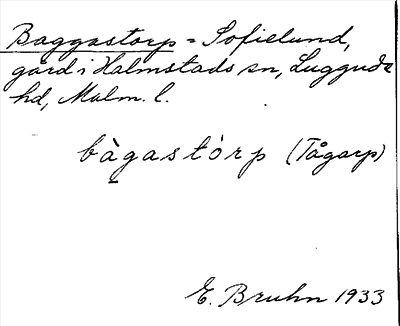 Baggastorp = Sofielund,
gård i Halmstads sn, Luggude
hd, Malm. l.
bà̱gastórp (Tågarp)
E. Bruhn 1933